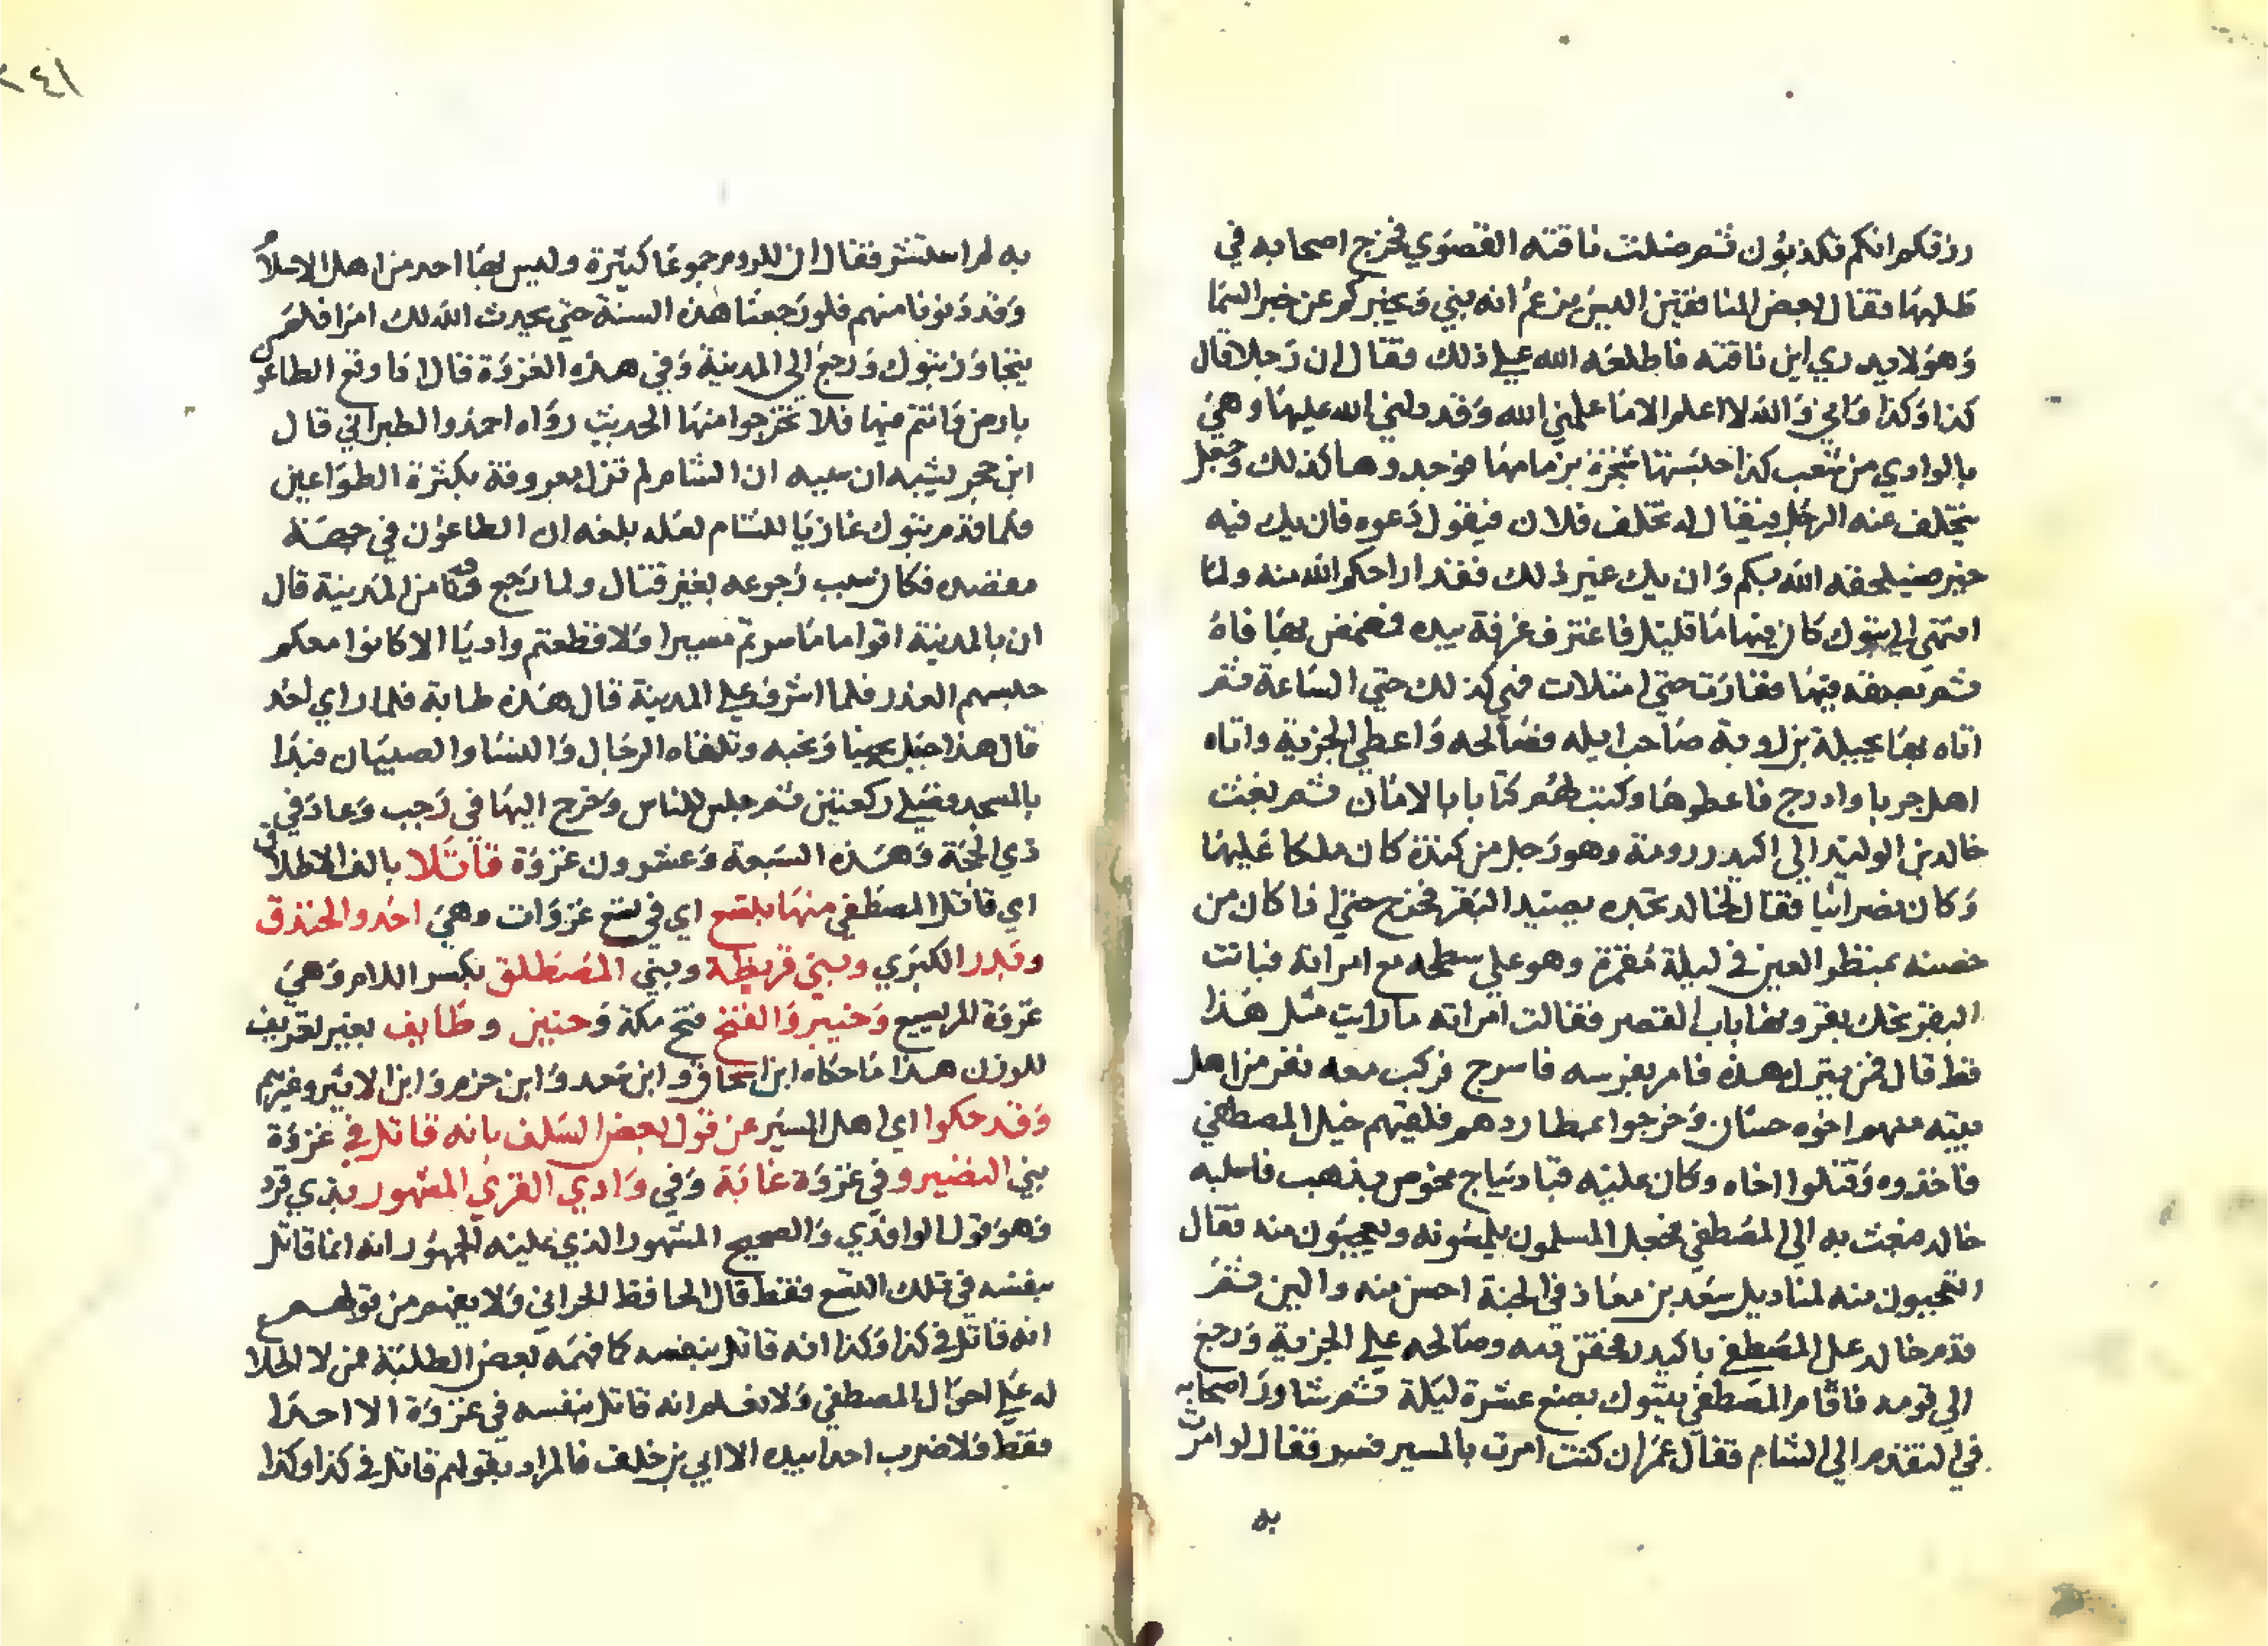 رزقكم انكم تكذبون ثم ضلت ناقته القصوي فخرج اصحابه في
طلبها فقال بعض المنافقين اليس يزعم انه نبي ويخبركم عن خبر السما
وهو لا يدري اين ناقته فاطلعه الله علي ذلك فقال ان رجلا قال
كذا وكذا واني والله لا اعلم الا ما علمني الله وقد دلني الله عليها وهي
بالوادي من شعب كذا حبستها شجرة بزمامها فوجدوها كذلك وجعل
يتخلف عنه الرجل فيقال له تخلف فلان فيقول دعوه فان يك فيه
خير فسيلحقه الله بكم وان يك غير ذلك فقد اراحكم الله منه ولما
انتهى الي تبوك كان فيها ما قليل فاغترف غرفة بيده فمضمض بها فاه
ثم بصقه فيها ففارت حتي امتلات فهي كذلك حتي الساعة ثم
اتاه بها يحيلة بن روبة صاحب ايله فصالحه واعطي الجزية واتاه
اهل جربا وادرج فاعطوها وكتب لهم كتابا بالامان ثم بعث
خالد بن الوليد الي اكيدر دومة وهو رجل من كندة كان ملكا عليها
وكان نصرانيا فقال لخالد تجده يصيد البقر فخرج حتي اذا كان من
حصنه بمنظر العين في ليلة مقمرة وهو علي سطحه مع امراته فباتت
البقر تحك بقرونها باب القصر فقالت امراته ما رايت مثل هذا
قط قال فمن يترك هذه فامر بفرسه فاسرج فركب معه نفر من اهل
بيته منهم اخوه حسان وخرجوا بمطاردهم فلقيتهم خيل المصطفي
فاخذوه وقتلوا اخاه وكان عليه قبا ديباج مخوص بذهب فاسلبه
خالد فبعث به الي المصطفي فجعل المسلمون يلمسونه ويعجبون منه فقال
اتعجبون منه لمناديل سعد بن معاذ في الجنة احسن منه والين ثم
قدم خالد علي المصطفي باكيدر فحقن دمه وصالحه علي الجزية ورجع
الي قومه فاقام المصطفي بتبوك بضع عشرة ليلة ثم شاور اصحابه
في التقدم الي الشام فقال عمر ان كنت امرت بالمسير فسر فقال لو امرت
به
٢٤١
به لم استشر فقال ان للروم جموعا كثيرة وليس بها احد من اهل الاسلام
وقد دنونا منهم فلو رجعنا هذه السنة حتي يحدث الله لك امرا فلم
يتجاوز تبوك ورجع الي المدينة وفي هذه الغزوة قال اذا وقع الطاعون
بارض وانتم فيها فلا تخرجوا منها الحديث رواه احمد والطبراني قال
ابن حجر يشبه ان سببه ان الشام لم تزل معروفة بكثرة الطواعين
فلما قدم تبوك غازيا للشام لعله بلغه ان الطاعون في جهة
مقصده فكان سبب رجوعه بغير قتال ولما رجع ودنا من المدينة قال
ان بالمدينة اقواما ما سرتم مسيرا ولا قطعتم واديا الا كانوا معكم
حبسهم العذر فلما اشرف علي المدينة قال هذه طابة فلما راي احد
قال هذا جبل يحبنا ونحبه وتلقاه الرجال والنسا والصبيان فبدا
بالمسجد فصلي ركعتين ثم جلس للناس وخرج اليها في رجب وعاد في
ذي الحجة وهذه السبعة وعشرون غزوة قاتلا بالف الاطلاق
اي قاتل المصطفي منها بتسع اي في تسع غزوات وهي احد والخندق
وبدر الكبري وبني قريظة وبني المصطلق بكسر اللام وهي
غزوة المريسيع وخيبر والفتح فتح مكة وحنين وطايف بغير تعريف
للوزن هذا ما حكاه ابن اسحاق وابن سعد وابن حزم وابن الاثير وغيرهم
وقد حكوا اي اهل السير عن قول بعض السلف بانه قاتل في غزوة
بني النضير وفي غزوة غابة وفي وادي القري المشهور بذي قرد
وهو قول الواقدي والصحيح المشهور الذي عليه الجمهور انه انما قاتل
بنفسه في تلك التسع فقط قال الحافظ الحراني ولا يفهم من قولهم
انه قاتل في كذا وكذا انه قاتل بنفسه كما فهمه بعض الطلبة ممن لا اطلاع
له علي احوال المصطفي ولا يعلم انه قاتل بنفسه في غزوة الا احدا
فقط ولا ضرب احدا بيده الا ابي بن خلف فالمراد بقولهم قاتل في كذا وكذا